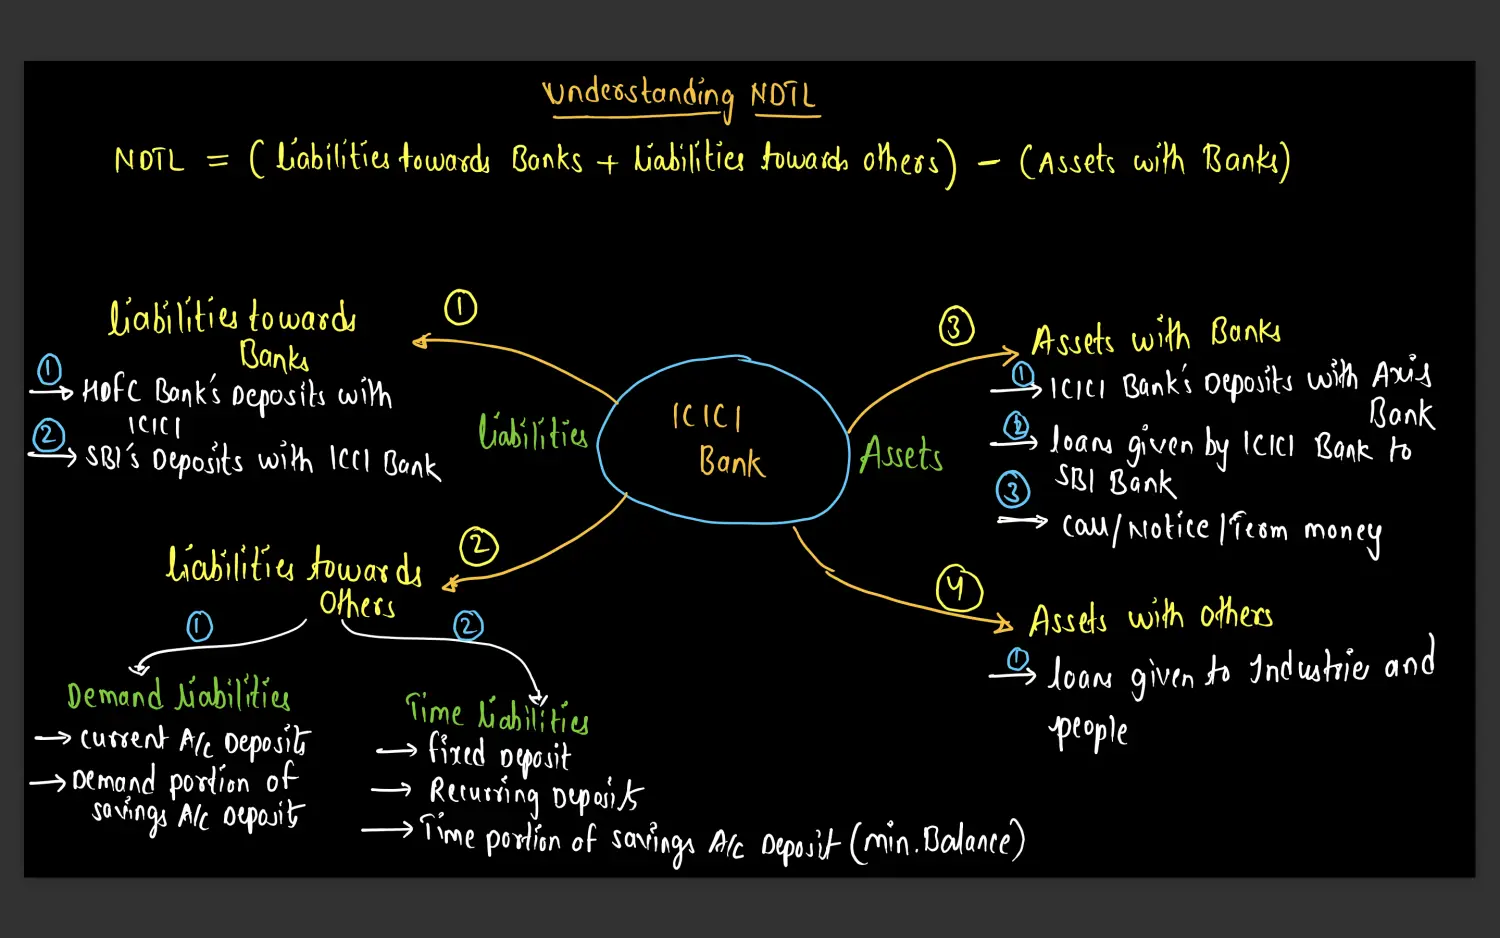 Understanding NDTL
NDTL = (Liabilities towards Banks + Liabilities towards others) - (Assets with Banks)
Liabilities towards
Banks
1
→ HDFC Bank's Deposits with
ICICI
2
→ SBI's Deposits with ICCI Bank
1
Liabilities
ICICI
Bank
Assets
3
Assets with Banks
1
→ ICICI Bank's Deposits with Axis
Bank
2
→ loans given by ICICI Bank to
SBI Bank
3
→ Call/Notice/Term money
2
Liabilities towards
Others
1
Demand Liabilities
→ Current A/c Deposits
→ Demand portion of
savings A/c Deposit
2
Time Liabilities
→ fixed Deposit
→ Recurring Deposits
→ Time portion of savings A/c Deposit (min. Balance)
4
Assets with others
1
→ loans given to Industrie and
people